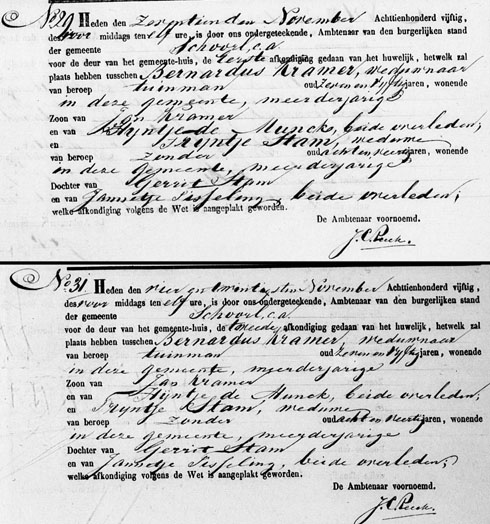 No 29 Heden den zeventienden November Achttienhonderd vijftig,
des voor middags ten elf ure, is door ons ondergeteekende, Ambtenaar van den burgerlijken stand
der gemeente Schoorl, c.a.
voor de deur van het gemeente-huis, de eerste afkondiging gedaan van het huwelijk, hetwelk zal
plaats hebben tusschen Bernardus Kramer, weduwnaar
van beroep tuinman oud zeven en vijftig jaren, wonende
in deze gemeente, meerderjarige
Zoon van Jan Kramer
en van Hijntje de Munck, beide overleden;
en Trijntje Stam, weduwe
van beroep zonder oud acht en veertig jaren, wonende
in deze gemeente, meerderjarige
Dochter van Gerrit Stam
en van Jannetje Tisseling, beide overleden;
welke afkondiging volgens de Wet is aangeplakt geworden.
De Ambtenaar voornoemd.
No 31. Heden den vier en twintigsten November Achttienhonderd vijftig,
des voor middags ten elf ure, is door ons ondergeteekende, Ambtenaar van den burgerlijken stand
der gemeente Schoorl, c.a.
voor de deur van het gemeente-huis, de tweede afkondiging gedaan van het huwelijk, hetwelk zal
plaats hebben tusschen Bernardus Kramer, weduwnaar
van beroep tuinman oud zeven en vijftig jaren, wonende
in deze gemeente, meerderjarige
Zoon van Jan Kramer
en van Hijntje de Munck, beide overleden;
en Trijntje Stam, weduwe
van beroep zonder oud acht en veertig jaren, wonende
in deze gemeente, meerderjarige
Dochter van Gerrit Stam
en van Jannetje Tisseling, beide overleden;
welke afkondiging volgens de Wet is aangeplakt geworden.
De Ambtenaar voornoemd.